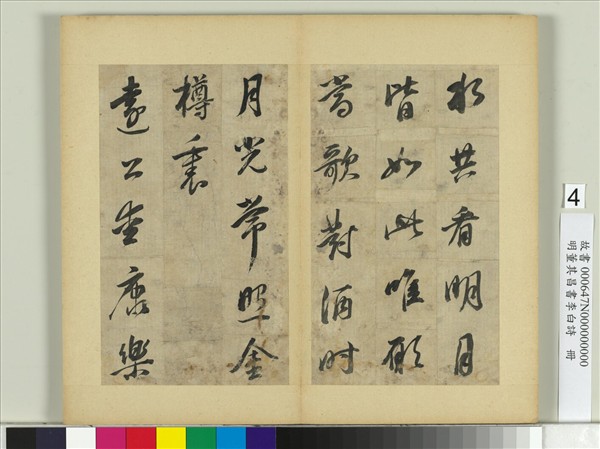 水共看明月
皆如此唯願
當歌對酒時
月光常照金
樽裏
遠公愛康樂
4
故書 000647N000000000
明董其昌書李白詩 冊